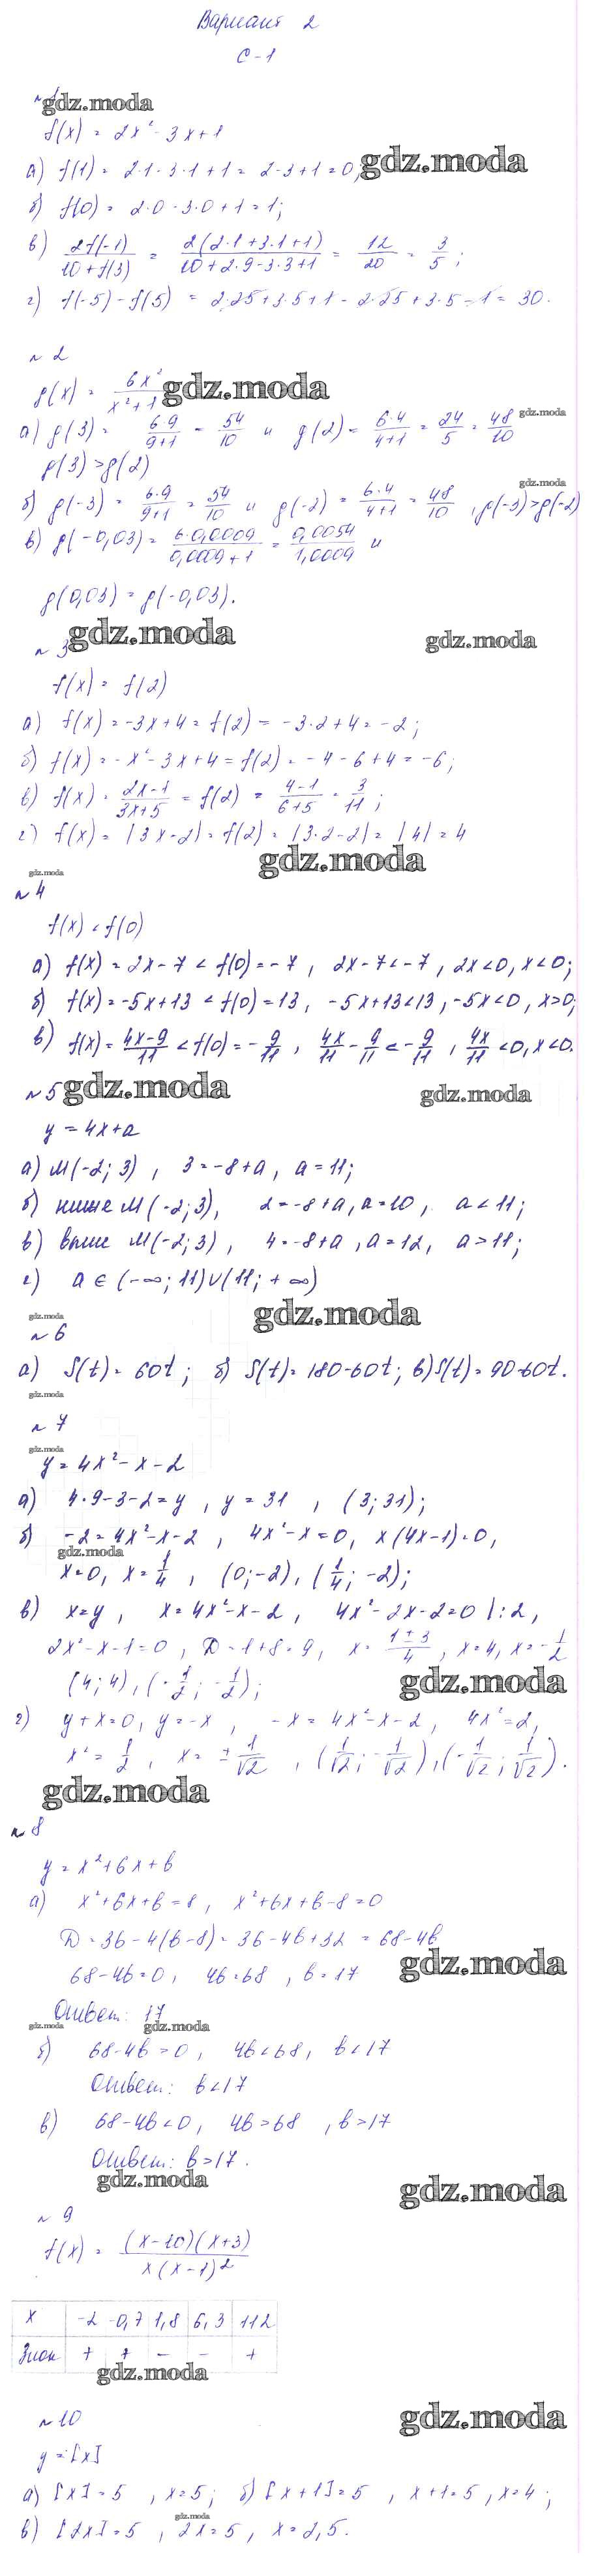 Вариант 2
С-1
№1
gdz.moda
f(x) = 2x² - 3x + 1
а) f(1) = 2·1 - 3·1 + 1 = 2 - 3 + 1 = 0; gdz.moda
б) f(0) = 2·0 - 3·0 + 1 = 1;
в) 2f(-1)/(10+f(3)) = 2(2·1+3·1+1)/(10+2·9-3·3+1) = 12/20 = 3/5;
г) f(-5) - f(5) = 2·25+3·5+1 - 2·25+3·5-1 = 30.
№2
g(x) = 6x²/(x²+1) gdz.moda
gdz.moda
а) g(3) = 6·9/(9+1) = 54/10 и g(2) = 6·4/(4+1) = 24/5 = 48/10
g(3) > g(2)
gdz.moda
б) g(-3) = 6·9/(9+1) = 54/10 и g(-2) = 6·4/(4+1) = 48/10, g(-3) > g(-2)
в) g(-0,03) = 6·0,0009/(0,0009+1) = 0,0054/1,0009 и
g(0,03) = g(-0,03).
№3 gdz.moda gdz.moda
f(x) = f(2)
а) f(x) = -3x+4 = f(2) = -3·2+4 = -2;
б) f(x) = -x²-3x+4 = f(2) = -4-6+4 = -6;
в) f(x) = (2x-1)/(3x+5) = f(2) = (4-1)/(6+5) = 3/11;
г) f(x) = |3x-2| = f(2) = |3·2-2| = |4| = 4
gdz.moda gdz.moda
№4
f(x) < f(0)
а) f(x) = 2x-7 < f(0) = -7, 2x-7 < -7, 2x<0, x<0;
б) f(x) = -5x+13 < f(0) = 13, -5x+13<13, -5x<0, x>0;
в) f(x) = (4x-9)/11 < f(0) = -9/11, 4x/11 - 9/11 < -9/11, 4x/11 < 0, x<0.
№5 gdz.moda gdz.moda
y = 4x+a
а) M(-2; 3), 3 = -8+a, a = 11;
б) ниже M(-2; 3), 2 = -8+a, a = 10, a < 11;
в) выше M(-2; 3), 4 = -8+a, a = 12, a > 11;
г) a ∈ (-∞; 11)∪(11; +∞)
gdz.moda gdz.moda
№6
а) S(t) = 60t; б) S(t) = 180-60t; в) S(t) = 90-60t.
gdz.moda
№7
gdz.moda
y = 4x²-x-2
а) 4·9-3-2 = y, y = 31, (3; 31);
б) -2 = 4x²-x-2, 4x²-x = 0, x(4x-1) = 0,
gdz.moda
x=0, x=1/4, (0; -2), (1/4; -2);
в) x=y, x = 4x²-x-2, 4x²-2x-2=0 |:2,
2x²-x-1=0, D = 1+8 = 9, x = (1±3)/4, x=4, x=-1/2
(4; 4), (-1/2; -1/2); gdz.moda
г) y+x=0, y=-x, -x = 4x²-x-2, 4x²=2,
x² = 1/2, x = ±1/√2, (1/√2; -1/√2), (-1/√2; 1/√2).
gdz.moda
№8
y = x²+6x+b
а) x²+6x+b = 8, x²+6x+b-8=0
D = 36-4(b-8) = 36-4b+32 = 68-4b
gdz.moda
68-4b=0, 4b=68, b=17
Ответ: 17
gdz.moda gdz.moda
б) 68-4b > 0, 4b<68, b<17
Ответ: b<17
в) 68-4b<0, 4b>68, b>17
Ответ: b>17.
gdz.moda gdz.moda
№9
f(x) = (x-10)(x+3)/(x(x-1)²)
x -2 -0,7 1,8 6,3 112
Знак + + - - +
gdz.moda
№10 gdz.moda
y = [x]
а) [x] = 5, x=5; б) [x+1] = 5, x+1=5, x=4;
gdz.moda
в) [2x] = 5, 2x=5, x=2,5.